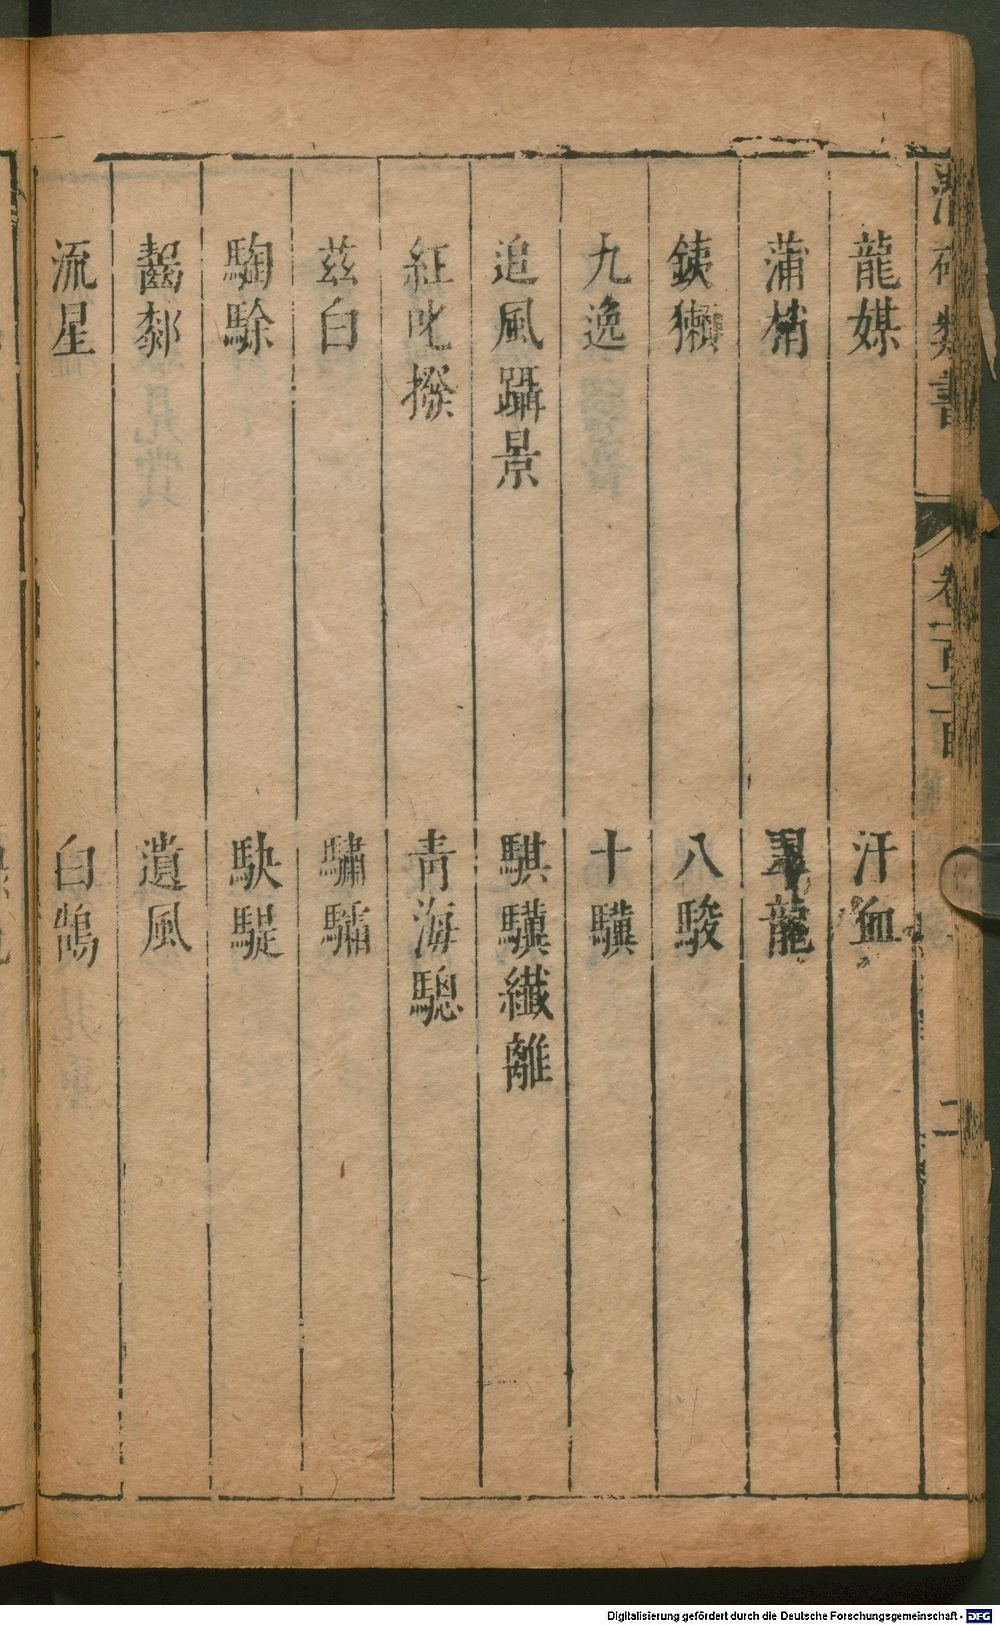 類書
卷一百
二
龍媒
汗血
蒲梢
龍
銕獺
八駿
九逸
十驥
追風躡景
騏驥纖離
紅叱撥
青海驄
茲白
驌
騊駼
駃騠
齧
遺風
流星
白鵠
Digitalisierung gefördert durch die Deutsche Forschungsgemeinschaft - DFG